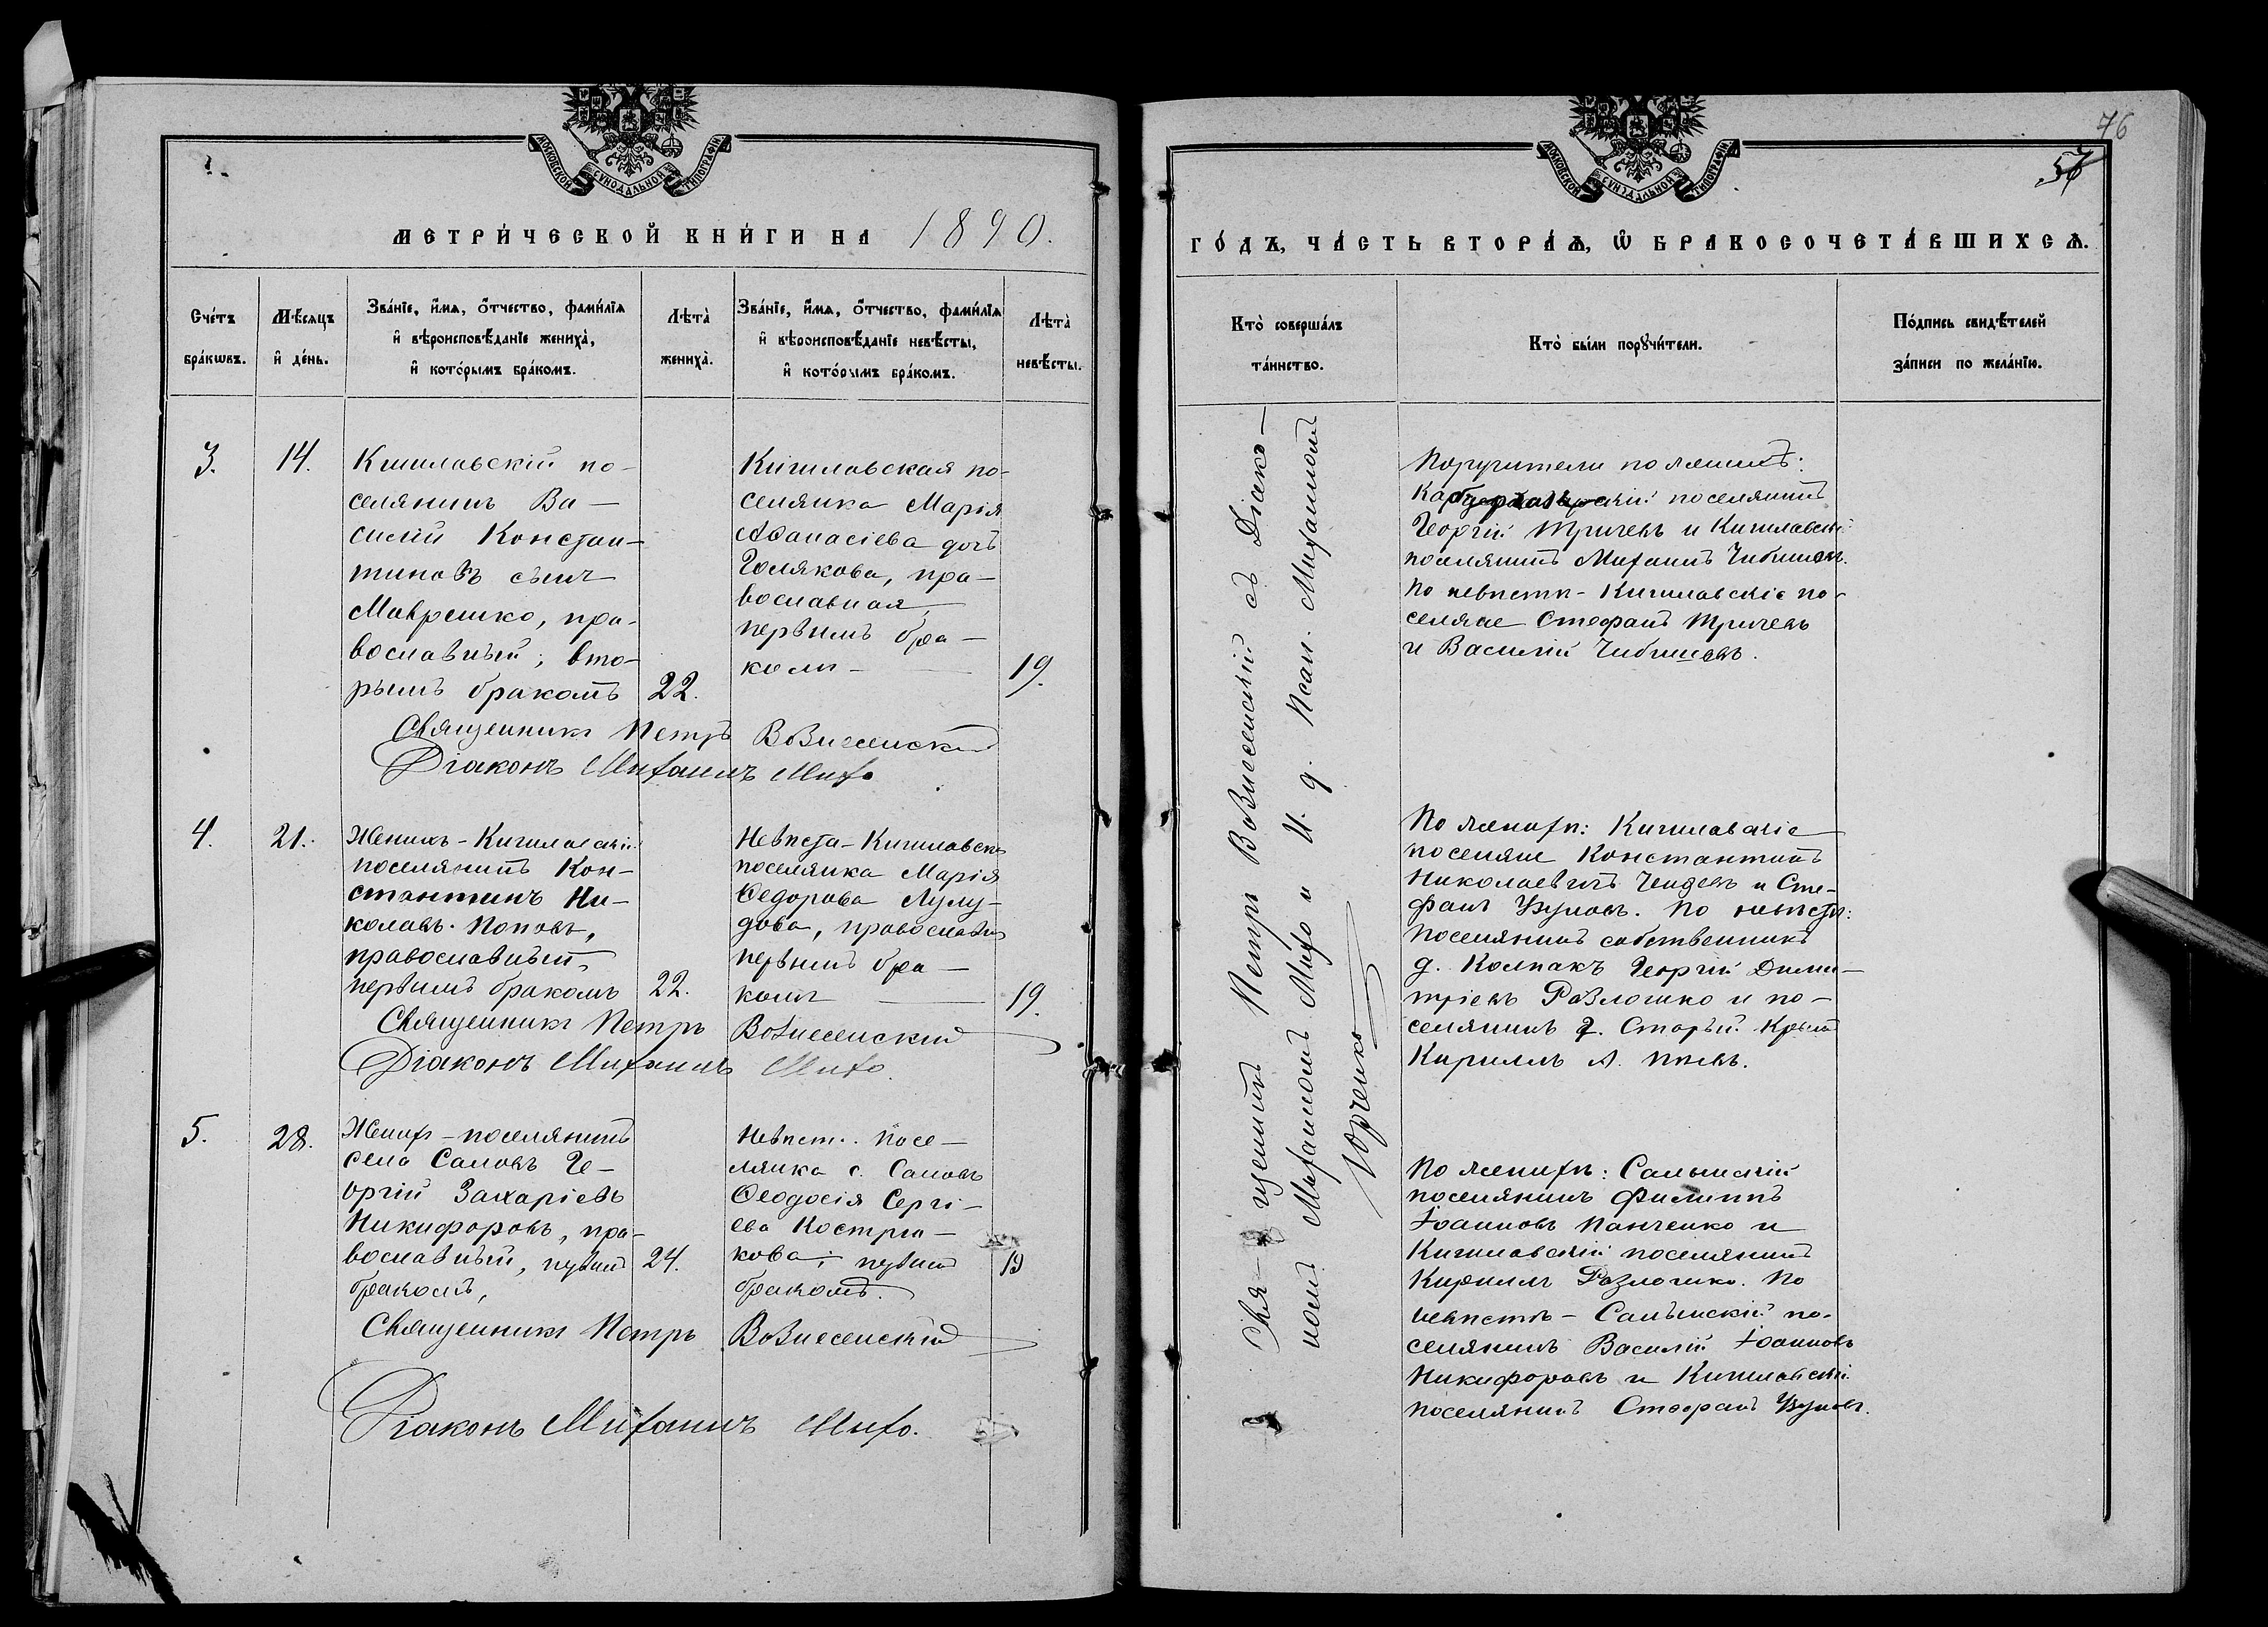 МОСКОВСКОЙ СѴНОДАЛЬНОЙ ТИПОГРАФІИ
МЕТРИ́ЧЕСКОЙ КНИ́ГИ НА 1890.
Сче́тъ бра́кѡвъ.
Мѣ́сяцъ и҆ де́нь.
Зва́нїе, и҆́мѧ, ѻ҆́тчество, фами́лїѧ
и҆ вѣроисповѣ́данїе жениха̀,
и҆ кото́рымъ бра́комъ.
Лѣта̀ жениха̀.
Зва́нїе, и҆́мѧ, ѻ҆́тчество, фами́лїѧ
и҆ вѣроисповѣ́данїе невѣ́сты,
и҆ кото́рымъ бра́комъ.
Лѣта̀ невѣ́сты.
3.
14.
Кишлавскій по-
селянинъ Ва-
силій Констан-
тиновъ сынъ
Маврешко, пра-
вославный, вто-
рымъ бракомъ
22.
Кишлавская по-
селянка Марія
Аѳанасіева дочь
Голякова, пра-
вославная,
первымъ бра-
комъ
19.
Священникъ Петръ Вознесенскій
Діаконъ Михаилъ Михо
4.
21.
Женихъ - Кишлавскій
поселянинъ Кон-
стантинъ Ни-
колаевъ Поповъ,
православный,
первымъ бракомъ
22.
Невѣста - Кишлавская
поселянка Марія
Ѳедорова Лулу-
дова, православная
первымъ бра-
комъ
19.
Священникъ Петръ Вознесенскій
Діаконъ Михаилъ Михо.
5.
28.
Женихъ - поселянинъ
села Саловъ Ге-
оргій Захаріевъ
Никифоровъ, пра-
вославный, первымъ
бракомъ,
24.
Невѣста. Посе-
лянка с. Саловъ
Ѳеодосія Сергі-
ева Кострю-
кова; первымъ
бракомъ.
19
Священникъ Петръ Вознесенскій
Діаконъ Михаилъ Михо.
76
МОСКОВСКОЙ СѴНОДАЛЬНОЙ ТИПОГРАФІИ
ГО́ДЪ, ЧА́СТЬ ВТОРА́Ѧ, Ѽ БРАКОСОЧЕТА́ВШИХСѦ.
Кто̀ соверша́лъ
та́инство.
Кто̀ бы́ли порꙋчи́тели.
По́дпись свидѣ́телей
за́писи по жела́нїю.
Священникъ Петръ Вознесенскій съ Діако-
номъ Михаиломъ Михо и И. д. Псал. Михаиломъ
Юрченко
Поручители по женихѣ:
поселянинъ
Георгій Тричевъ и Кишлавскій
поселянинъ Михаилъ Чибишевъ.
По невѣстѣ - Кишлавскіе по-
селяне Стефанъ Тричевъ
и Василій Чибишевъ.
По женихѣ: Кишлавскіе
поселяне Константинъ
Николаевичъ Чендевъ и Сте-
фанъ Узуновъ. По невѣстѣ:
поселянинъ собственникъ
д. Колпакъ Георгій Дими-
тріевъ Розлошко и по-
селянинъ д. Старый Крымъ
Кириллъ А.
По женихѣ: Салынскій
поселянинъ Филиппъ
Іоанновъ Панченко и
Кишлавскій поселянинъ
Кириллъ Розлошко. По
невѣстѣ - Салынскій по-
селянинъ Василій Іоанновъ
Никифоровъ и Кишлавскій
поселянинъ Стефанъ Узуновъ.